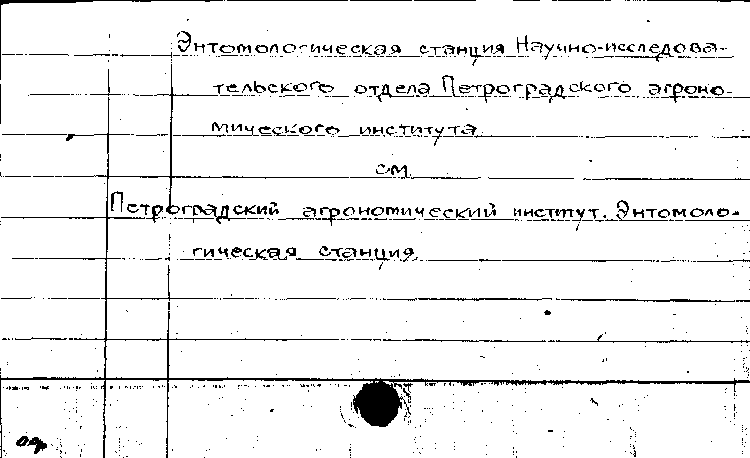 Энтомологическая станция Научно-исследова-
тельского отдела Петроградского агроно-
мического института
см.
Петроградский агрономический институт. Энтомоло-
гическая станция.